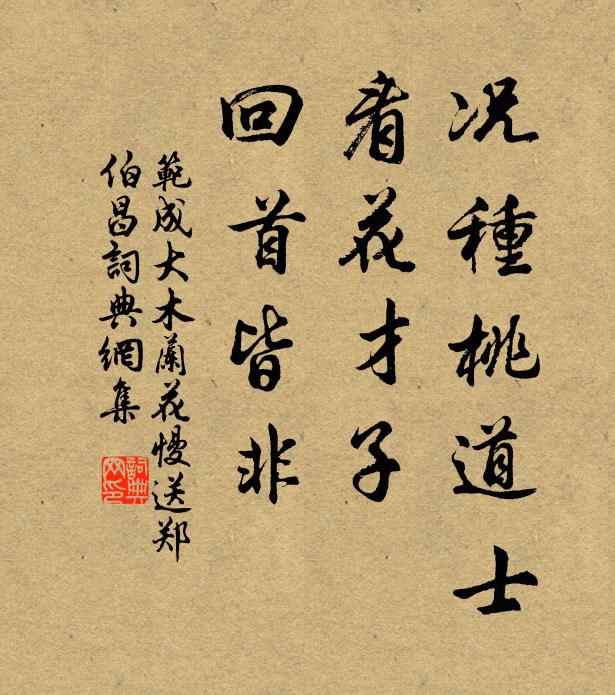 况種桃道士
看花才子
回首皆非
範成大木蘭花慢送郑
伯昌詞典網集
詞典网印